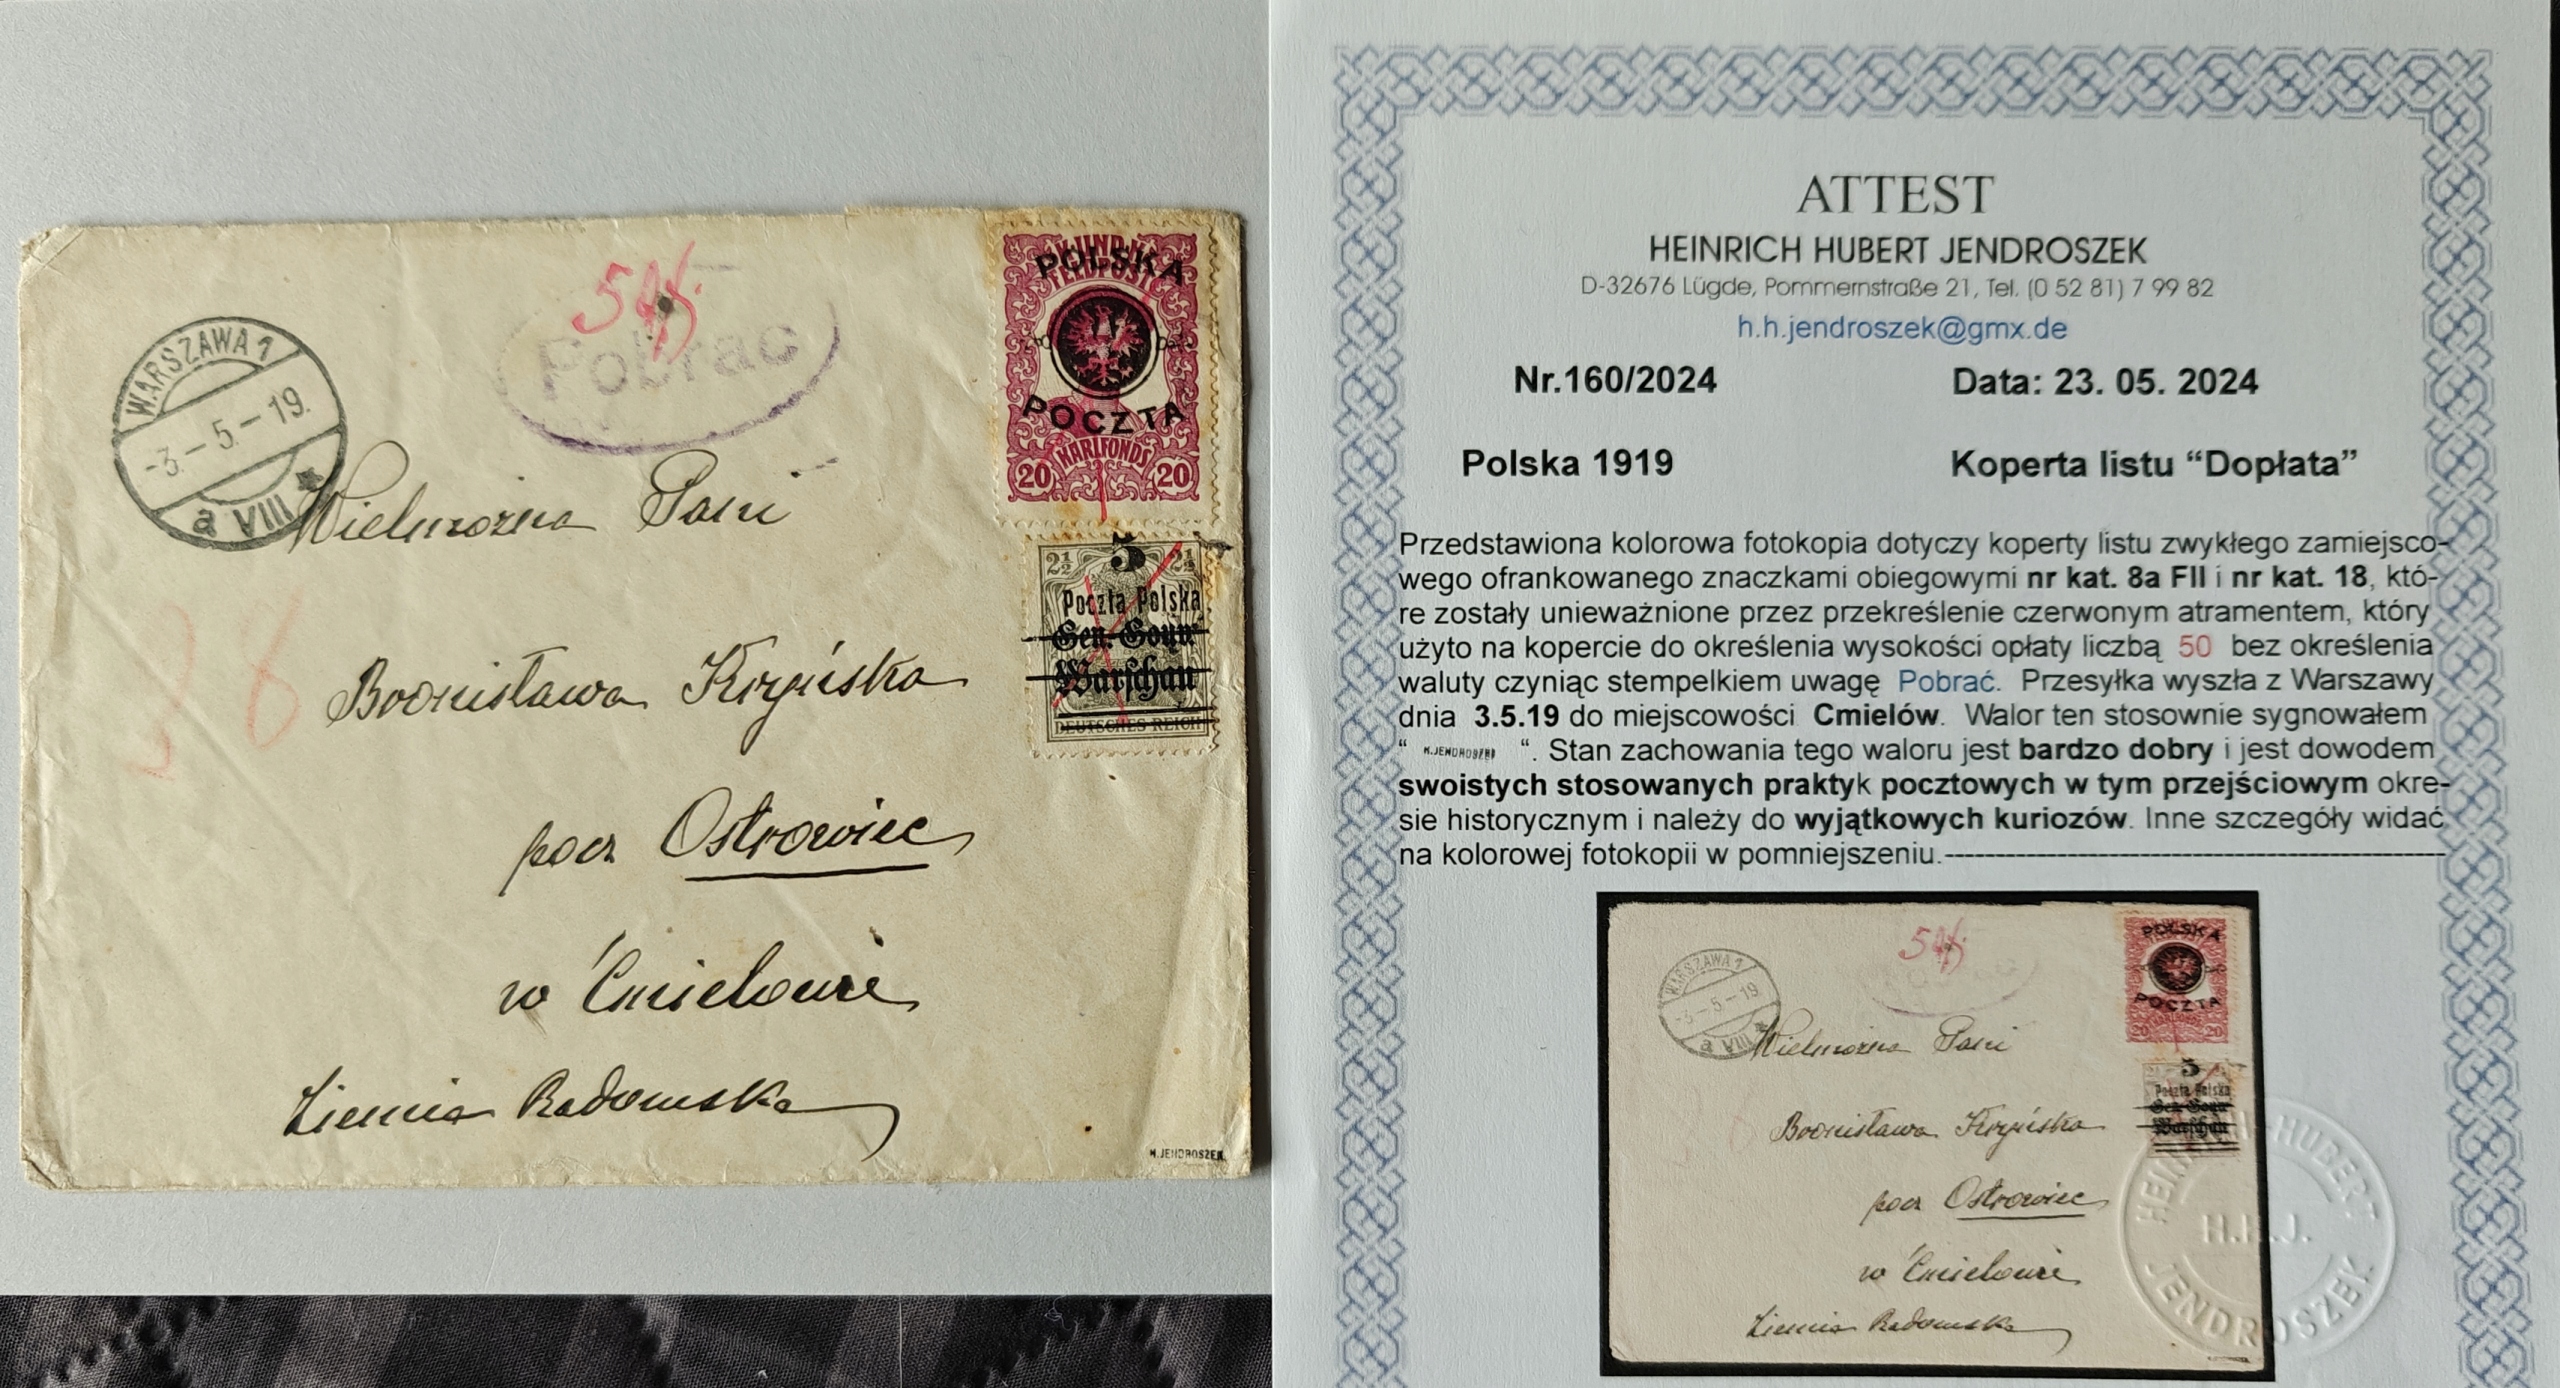 WARSZAWA 1
-3.-5.-19.
a VIII *
Pobrac
K.UND K.
FELDPOST
POLSKA
POCZTA
KARLFONDS
20 20
2½ 5 2½
Poczta Polska
Gen.-Gouv.
Warschau
DEUTSCHES REICH
Wielmożna Pani
Bronisława
pocz Ostrowiec
w Ćmielowie
Ziemia Radomska
H.JENDROSZEK
ATTEST
HEINRICH HUBERT JENDROSZEK
D-32676 Lügde, Pommernstraße 21, Tel. (0 52 81) 7 99 82
h.h.jendroszek@gmx.de
Nr.160/2024 Data: 23. 05. 2024
Polska 1919 Koperta listu “Dopłata”
Przedstawiona kolorowa fotokopia dotyczy koperty listu zwykłego zamiejsco-
wego ofrankowanego znaczkami obiegowymi nr kat. 8a FII i nr kat. 18, któ-
re zostały unieważnione przez przekreślenie czerwonym atramentem, który
użyto na kopercie do określenia wysokości opłaty liczbą 50 bez określenia
waluty czyniąc stempelkiem uwagę Pobrać. Przesyłka wyszła z Warszawy
dnia 3.5.19 do miejscowości Cmielów. Walor ten stosownie sygnowałem
“ H.JENDROSZEK “. Stan zachowania tego waloru jest bardzo dobry i jest dowodem
swoistych stosowanych praktyk pocztowych w tym przejściowym okre-
sie historycznym i należy do wyjątkowych kuriozów. Inne szczegóły widać
na kolorowej fotokopii w pomniejszeniu.
WARSZAWA 1
-3.-5.-19
a VIII *
POLSKA
POCZTA
20 20
5
Poczta Polska
Gen.-Gouv.
Warschau
Wielmożna Pani
Bronisława
pocz Ostrowiec
w Ćmielowie
Ziemia Radomska
HEINRICH HUBERT
H.H.J.
JENDROSZEK